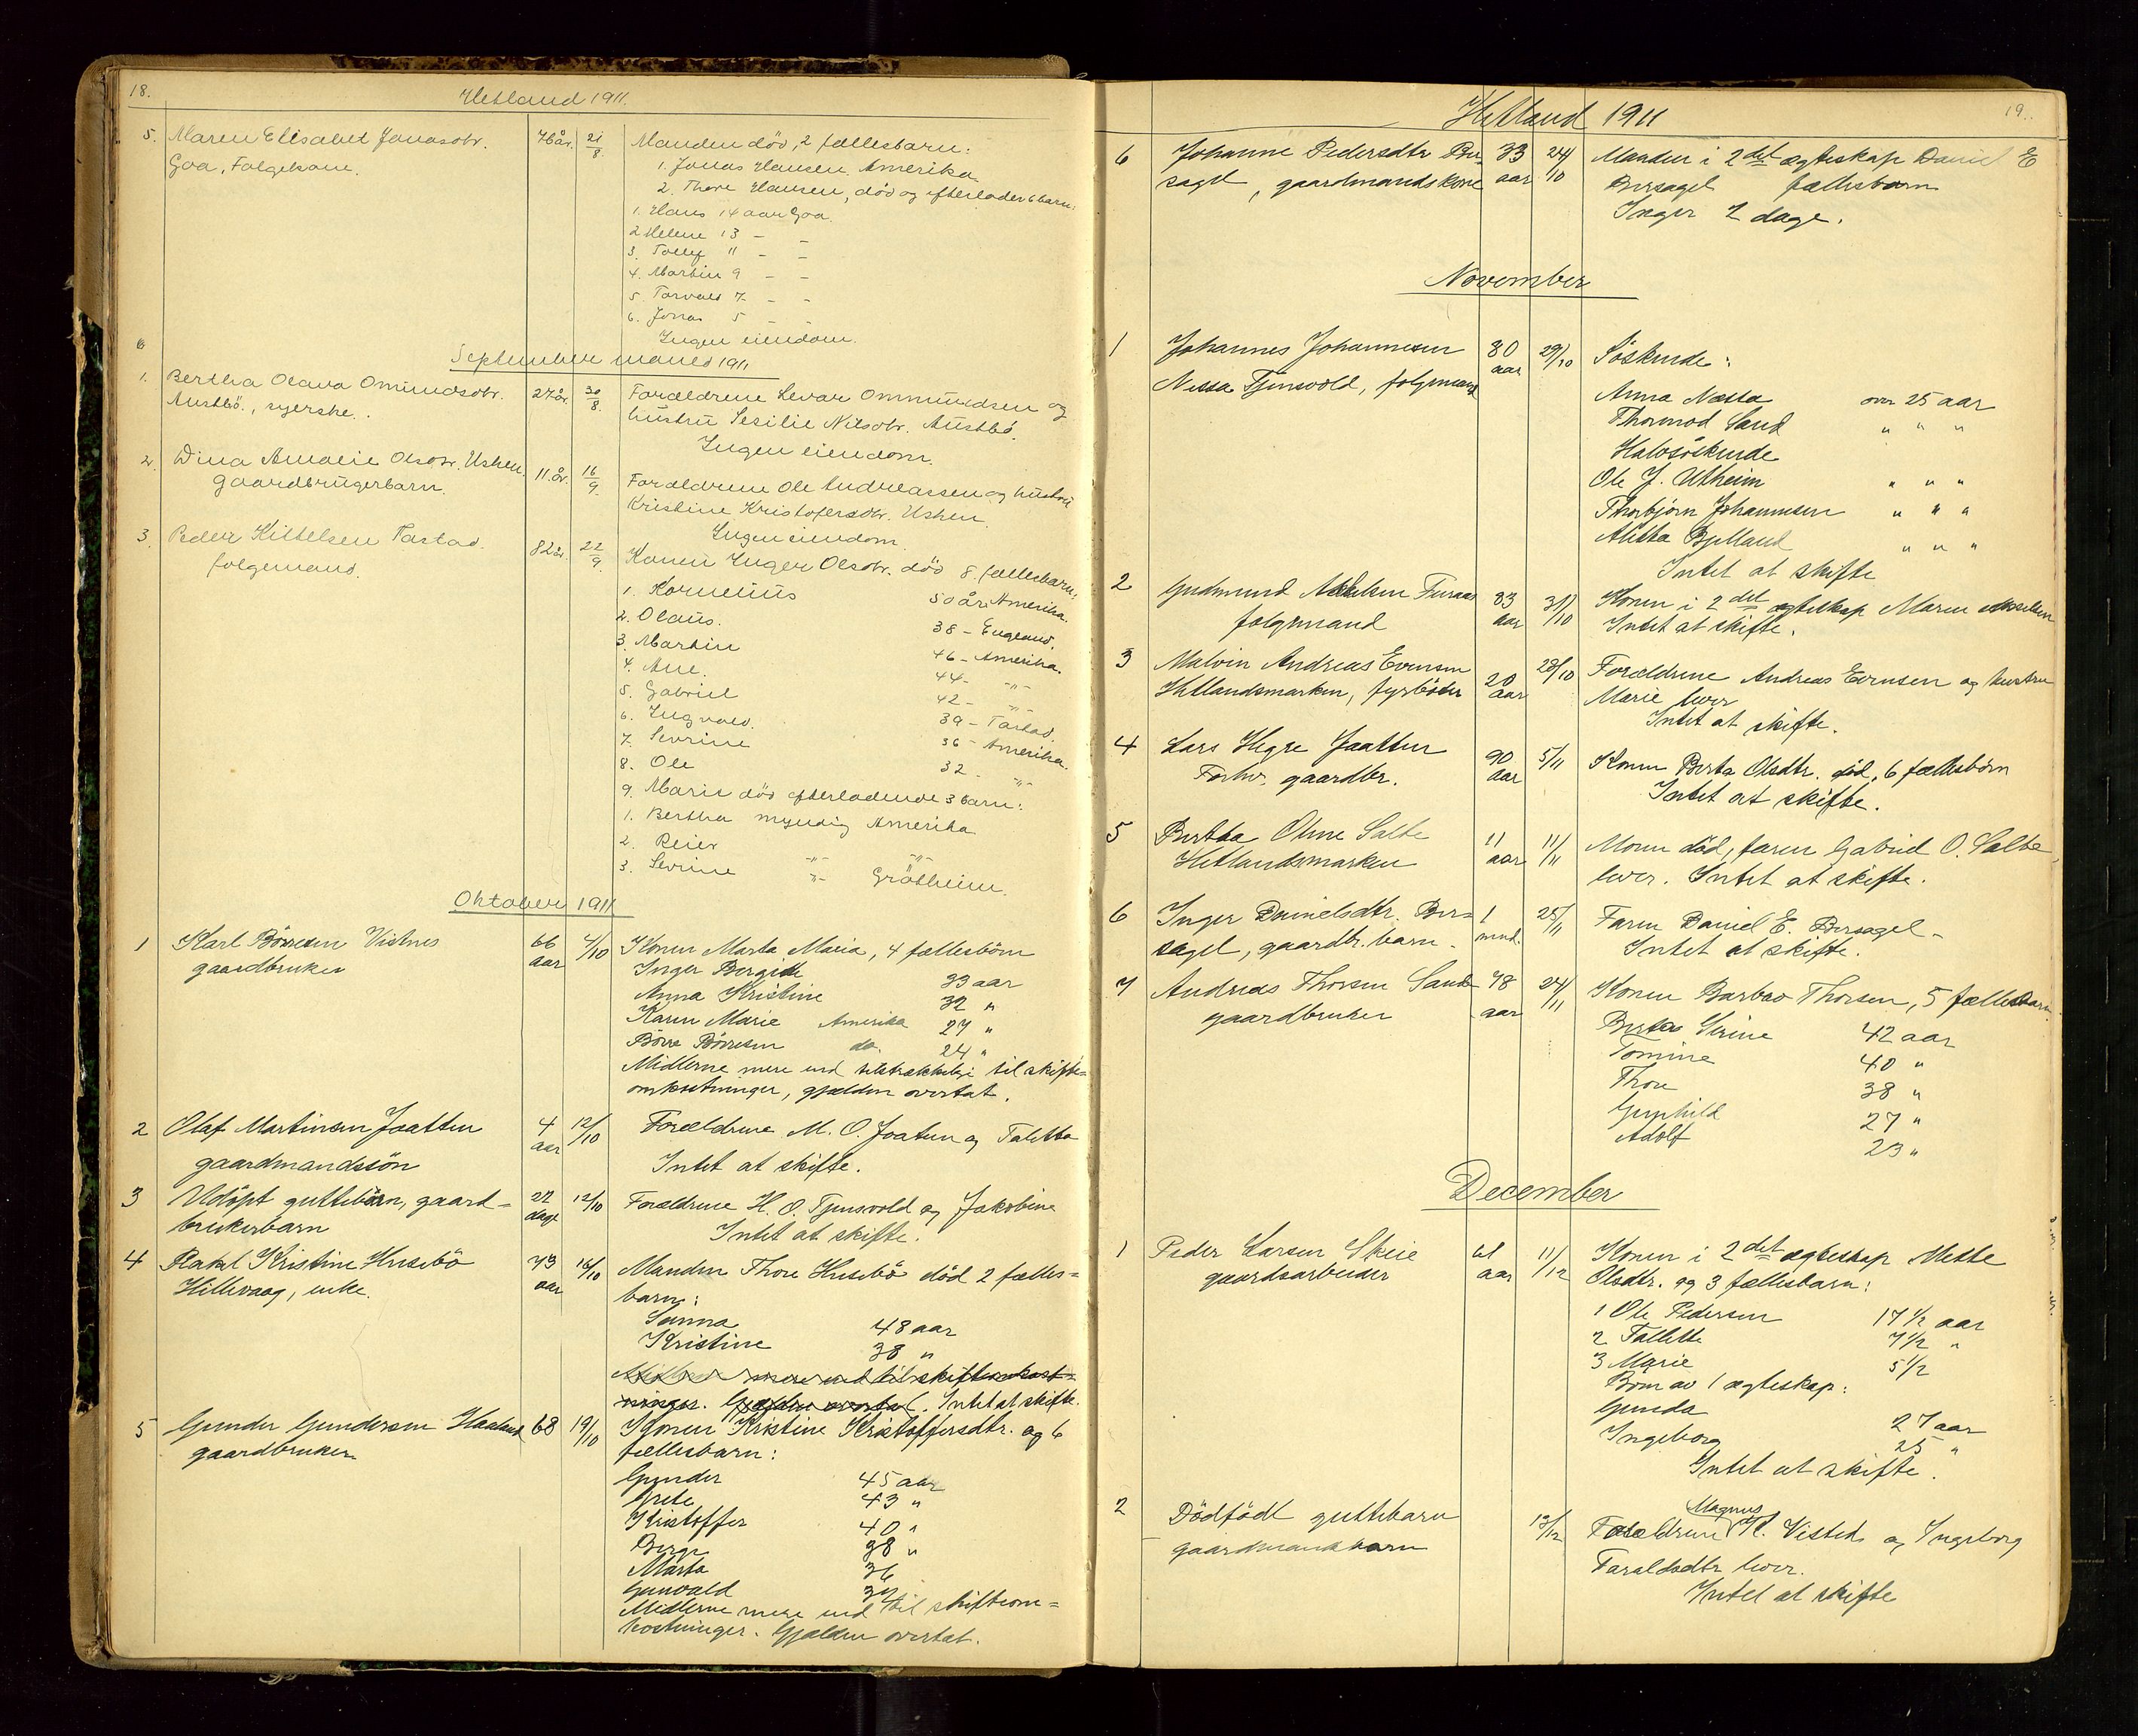 18.
Hetland 1911.
5. Maren Elisabet Jonasdtr. 76 år. 21/8. Manden död, 2 fællesbarn:
Goa, Folgekone. 1. Jonas Hansen, Amerika
2. Thore Hansen, död og efterlader 6 barn:
1. Hans 14 aar Goa.
2 Helene 13 - -
3. Tollef 11 - -
4. Martin 9 - -
5. Torvald 7 - -
6. Jonas 5 - -
Ingen eiendom.
6
September maned 1911
1. Bertha Olava Omundsdtr. 27 år. 30/8. Forældrene Sevar Ommundsen og
Austbö, syerske. hustru Sesilie Nilsdtr. Austbö.
Ingen eiendom.
2. Dina Amalie Olsdtr. Usken. 11. år. 16/9. Forældrene Ole Andreassen og hustru
gaardbrugerbarn. Kristine Kristofersdtr. Usken.
Ingen eiendom.
3. Peder Kittelsen Tastad. 82 år. 22/9. Konen Inger Olsdtr. död 8 fællesbarn:
folgemand.
1. Kornelius 50 år Amerika.
2. Olaus. 38 - England.
3. Martin 46 - Amerika.
4. Ane. 44 - -"-
5. Gabriel 42 - -"-
6. Ingvald. 39 - Tastad.
7. Sevrine 36 - Amerika.
8. Ole 32 - -"-
9. Marie död efterladende 3 barn:
1. Bertha myndig Amerika
2. Reier -"- -"-
3. Sevrine -"- Grötheim.
Oktober 1911
1 Karl Börresen Vistnes 66 aar 4/10 Konen Marta Maria, 4 fællesbörn
gaardbruker Inger Bergitte 33 aar
Anna Kristine 32 "
Karen Marie Amerika 27 "
Börre Börresen do. 24 "
Midlerne mere end tilstrækkelige til skifte=
omkostninger, gjælden overtat.
2 Olaf Martinsen Jaatten 4 aar 12/10 Forældrene M. O. Jaatun og Taletta
gaardmandssön Intet at skifte.
3 Udöpt guttebörn, gaard= 22 dage 12/10 Forældrene H. O. Tjensvold og Jakobine
brukerbarn Intet at skifte.
4 Rakel Kristine Husebö 73 aar 16/10 Manden Thore Husebö död 2 fælles=
Hillevaag, enke. barn:
Sanna 48 aar
Kristine 38 "
mere end til skifteomkost=
ninger. Gjælden overtat. Intet at skifte.
5 Gunder Gundersen Haaland 68 19/10 Konen Kristine Kristoffersdtr. og 6
gaardbruker fællesbarn:
Gunder 45 aar
Grete 43 "
Kristoffer 40 "
Berge 38 "
Marta 36
Gunvald 32
Midlerne mere end til skifteom=
kostninger. Gjælden overtat.
19.
Hetland 1911
6 Johanne Pedersdtr Ber= 33 aar 24/10 Manden i 2det ægteskap Daniel E
sagel, gaardmandskone Bersagel fællesbarn
Inger 2 dage.
November
1 Johannes Johannesen 80 aar 29/10 Söskende:
Nessa Tjensvold, folgemand
Anna Næssa over 25 aar
Thormod Sand " " "
Halvsöskende
Ole J. Utheim " " "
Thorbjörn Johannesen " " "
Aletta Bjelland " " "
Intet at skifte
2 Gudmund Furaas 83 aar 31/10 Konen i 2det ægteskap Maren
folgemand Intet at skifte.
3 Malvin Andreas Evensen 20 aar 28/10 Forældrene Andreas Evensen og hustru
Hetlandsmarken, fyrböter Marie lever
Intet at skifte.
4 Lars Hegre Jaatten 90 aar 5/11 Konen Berta Olsdtr. död, 6 fællesbörn
Forhv. gaardbr. Intet at skifte.
5 Bertha Oline Salte 11 aar 11/11 Moren död, faren Gabriel O. Salte,
Hetlandsmarken lever. Intet at skifte.
6 Inger Danielsdtr. Ber= 1 mnd. 25/11 Faren Daniel E. Bersagel -
sagel, gaardbr. barn. Intet at skifte.
7 Andreas Thorsen Sande 78 aar 24/11 Konen Barbro Thorsen, 5 fællesbarn.
gaardbruker Berta Serine 42 aar
Tomine 40 "
Thore 38 "
Gunhild 27 "
Adolf 23 "
December
1 Peder Larsen Skeie 61 aar 11/12 Konen i 2det ægteskap Mette
gaardsarbeider Olsdtr. og 3 fællesbarn:
1 Ole Pedersen 17 1/2 aar
2 Tallette 7 1/2 "
3 Marie 5 1/2
Börn av 1 ægteskap:
Gunda 27 aar
Ingeborg 25 "
Intet at skifte.
2 Dödfödt guttebarn 13/12 Forældrene Magnus K. Visted og Ingeborg
gaardmandsbarn Taraldsdtr lever.
Intet at skifte